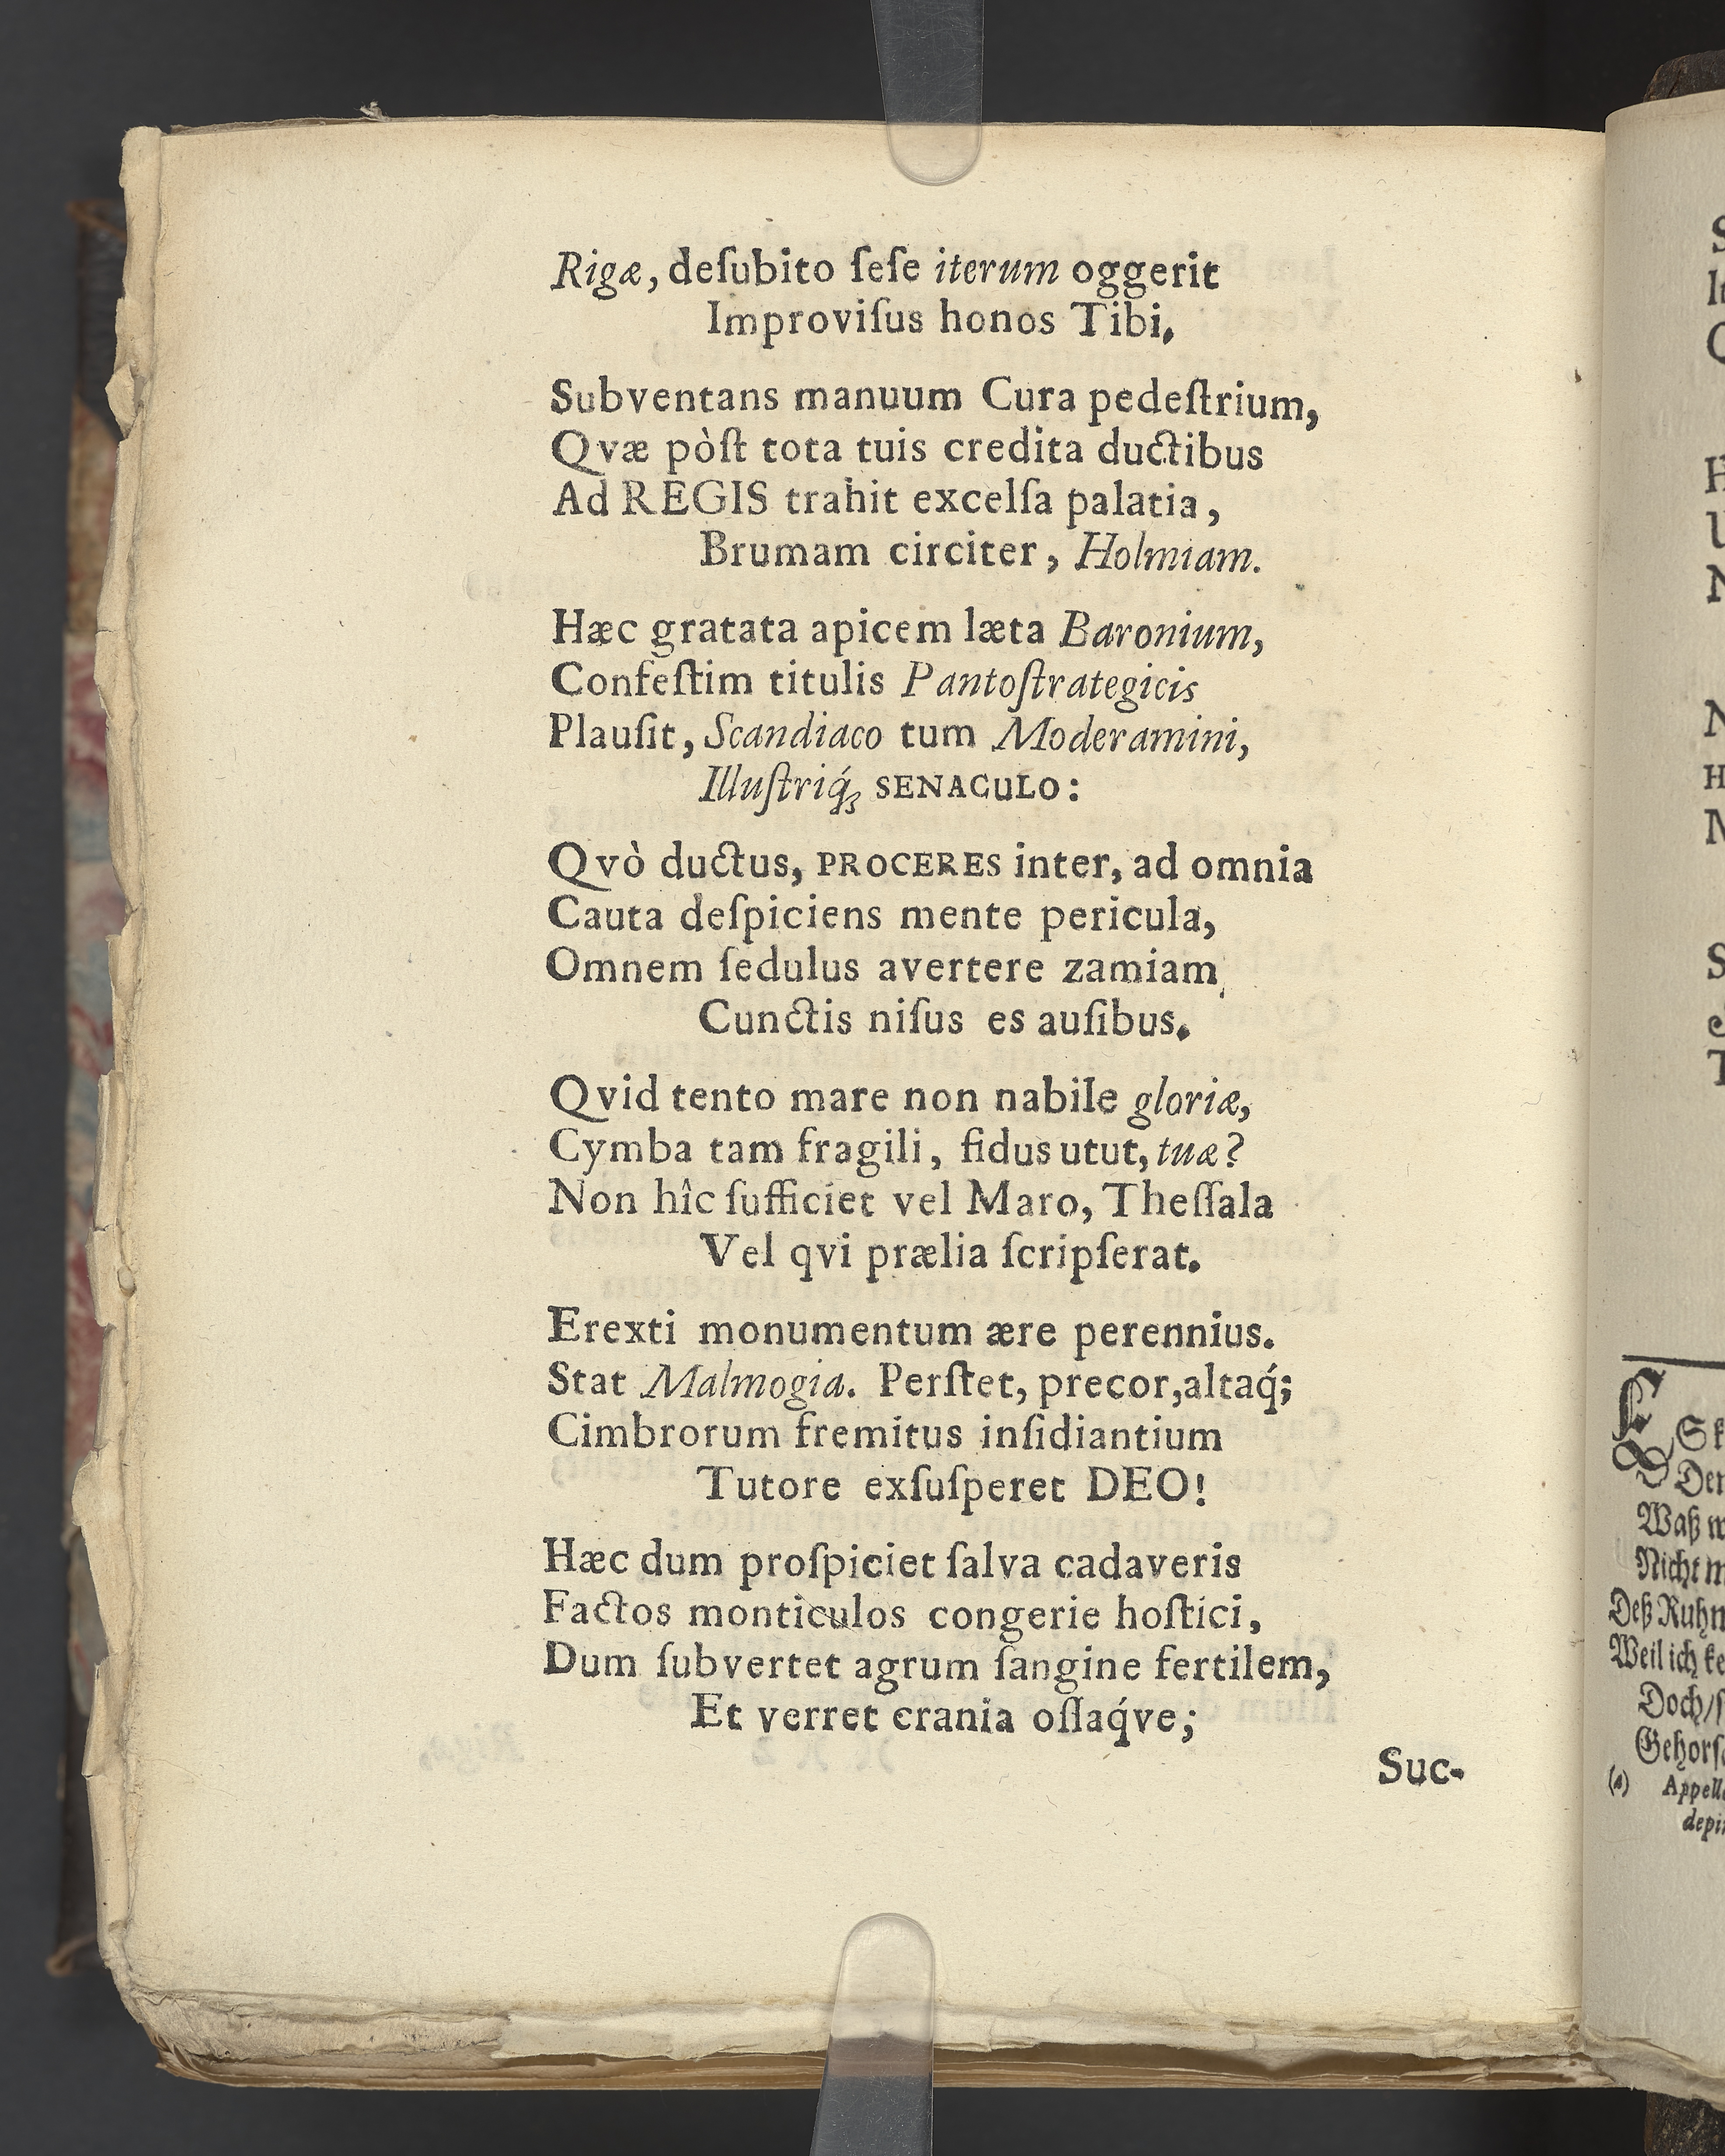 Rigæ, deſubito ſeſe iterum oggerit
Improviſus honos Tibi.
Subventans manuum Cura pedeſtrium,
Qvæ pòſt tota tuis credita ductibus
Ad REGIS trahit excelſa palatia,
Brumam circiter, Holmiam.
Hæc gratata apicem læta Baronium,
Confeſtim titulis Pantoſtrategicis
Plauſit, Scandiaco tum Moderamini,
Illuſtriq́; SENACULO:
Qvò ductus, PROCERES inter, ad omnia
Cauta deſpiciens mente pericula,
Omnem ſedulus avertere zamiam,
Cunctis niſus es auſibus.
Qvid tento mare non nabile gloriæ,
Cymba tam fragili, fidus utut, tuæ?
Non hîc ſufficiet vel Maro, Theſſala
Vel qvi prælia ſcripſerat.
Erexti monumentum ære perennius.
Stat Malmogia. Perſtet, precor, altaq́;
Cimbrorum fremitus inſidiantium
Tutore exſuſperet DEO!
Hæc dum proſpiciet ſalva cadaveris
Factos monticulos congerie hoſtici,
Dum ſubvertet agrum ſangine fertilem,
Et verret crania oſſaq́ve;
Suc-
Den
Waß w
Nicht m
Deß Ruhm
Weil ich ke
Doch/ſ
Gehorſ
(a) Appell
depi